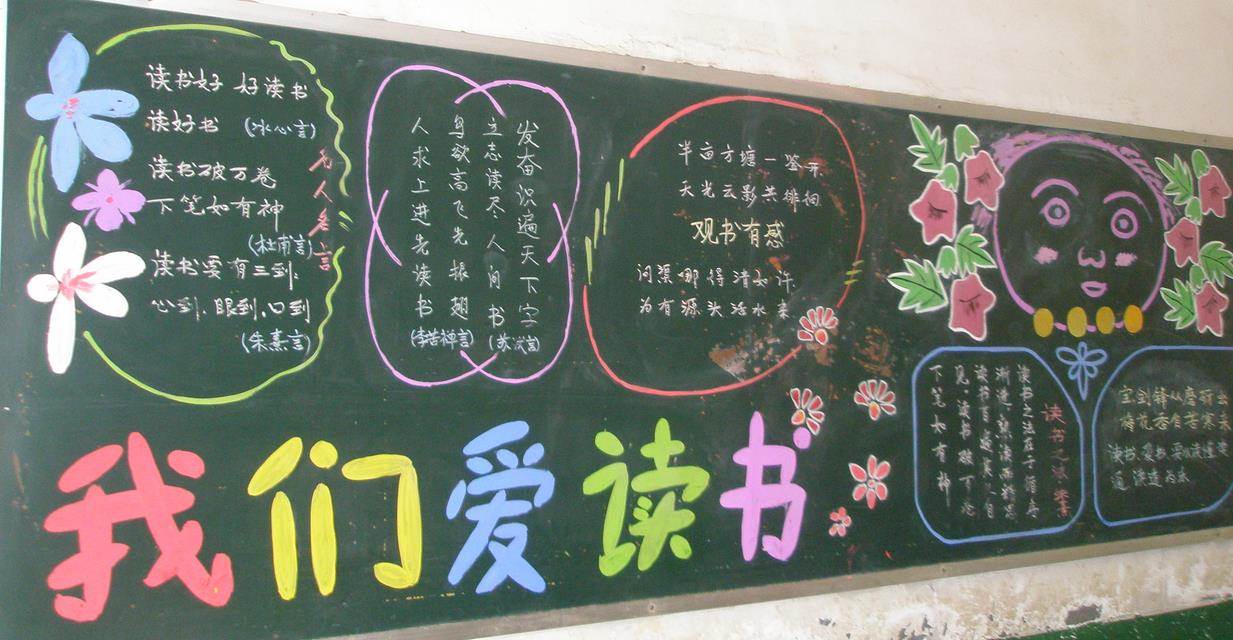 读书好 好读书
读好书 (冰心言)
读书破万卷
下笔如有神
(杜甫言)
读书要有三到:
心到,眼到,口到
(朱熹言)
名人名言
发奋识遍天下字
立志读尽人间书
(苏轼言)
鸟欲高飞先振翅
人求上进先读书
(李苦禅言)
半亩方塘一鉴开
天光云影共徘徊
观书有感
问渠哪得清如许
为有源头活水来
我们爱读书
读书之法在于循序
渐进熟读而精思
读书百遍其义自
见读书破万卷
下笔如有神
宝剑锋从磨砺出
梅花香自苦寒来
读书